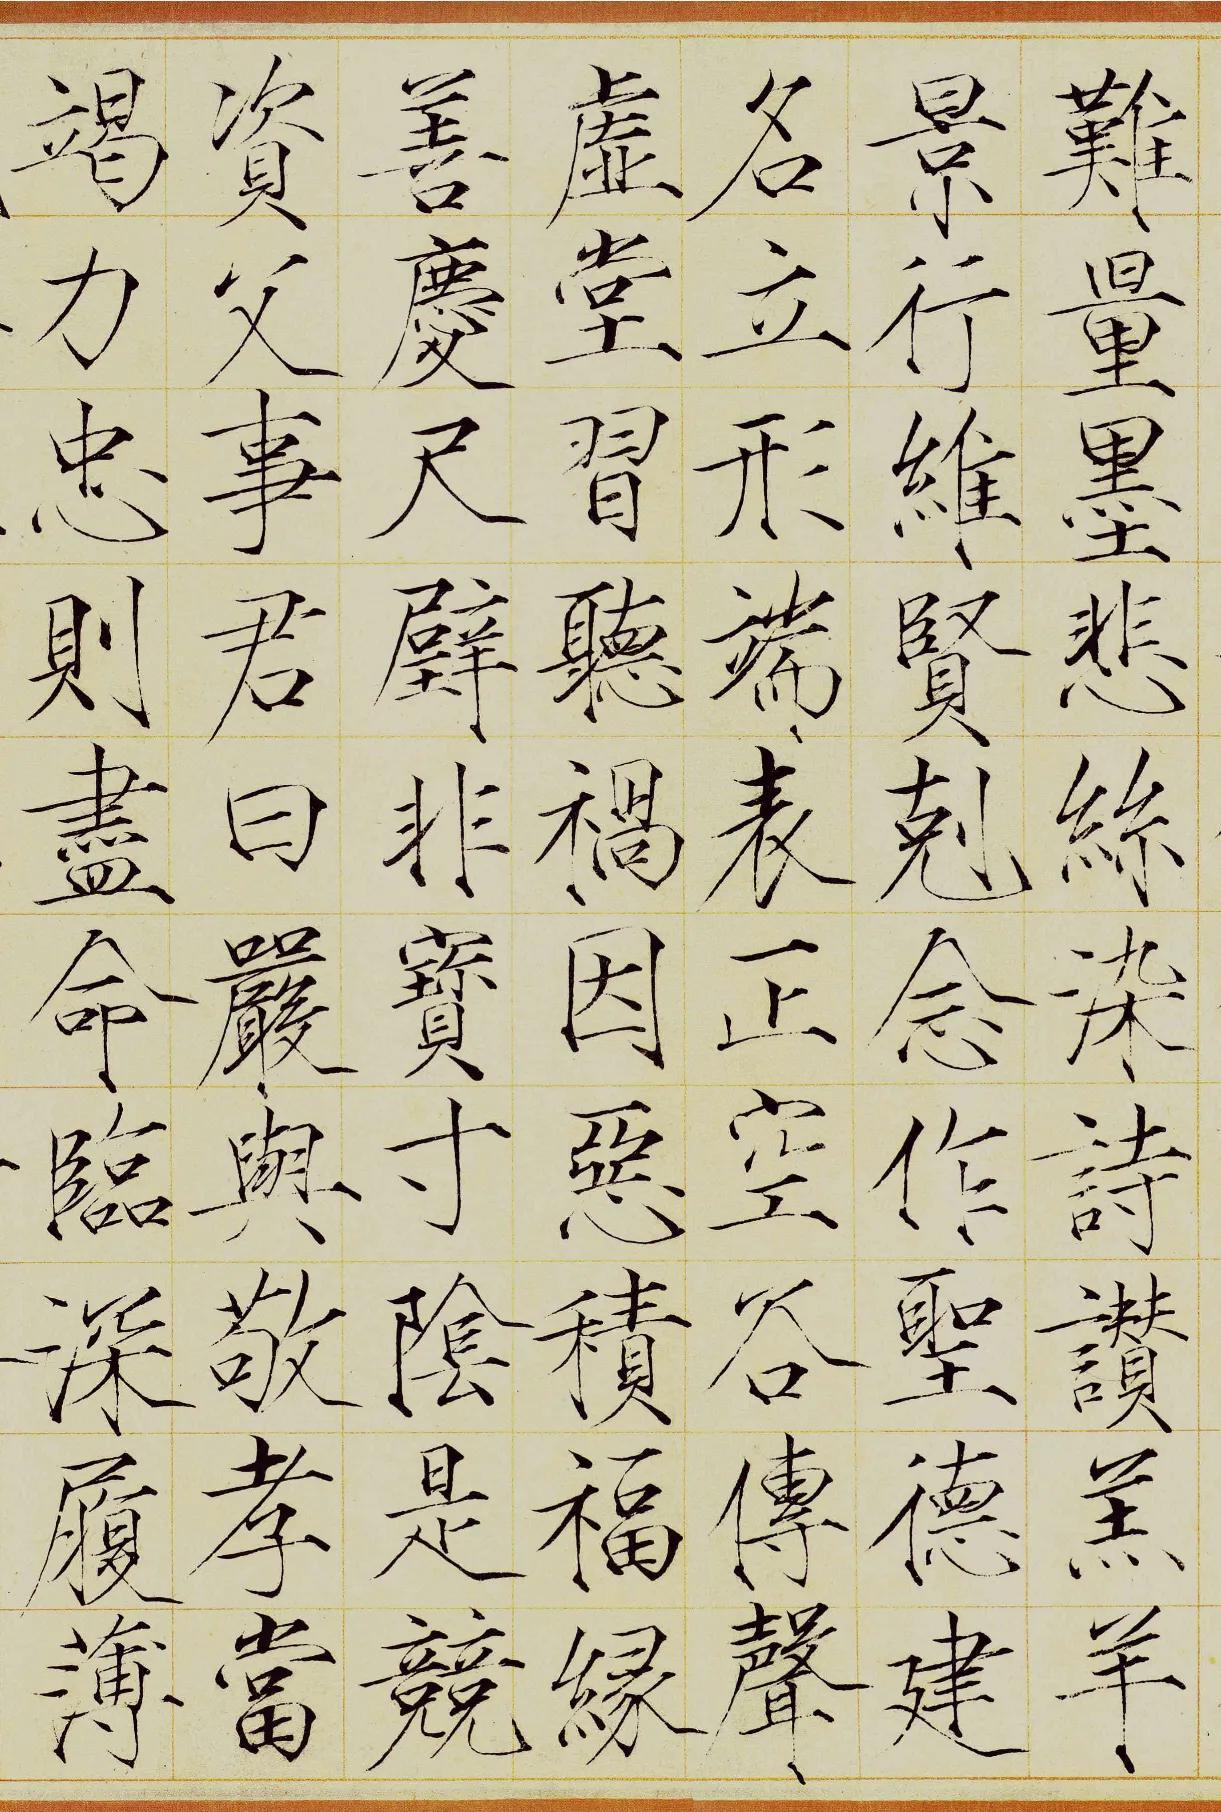 難量墨悲絲染詩讃羔羊
景行維賢剋念作聖德建
名立形端表正空谷傳聲
虛堂習聽禍因惡積福緣
善慶尺璧非寶寸陰是競
資父事君曰嚴與敬孝當
竭力忠則盡命臨深履薄